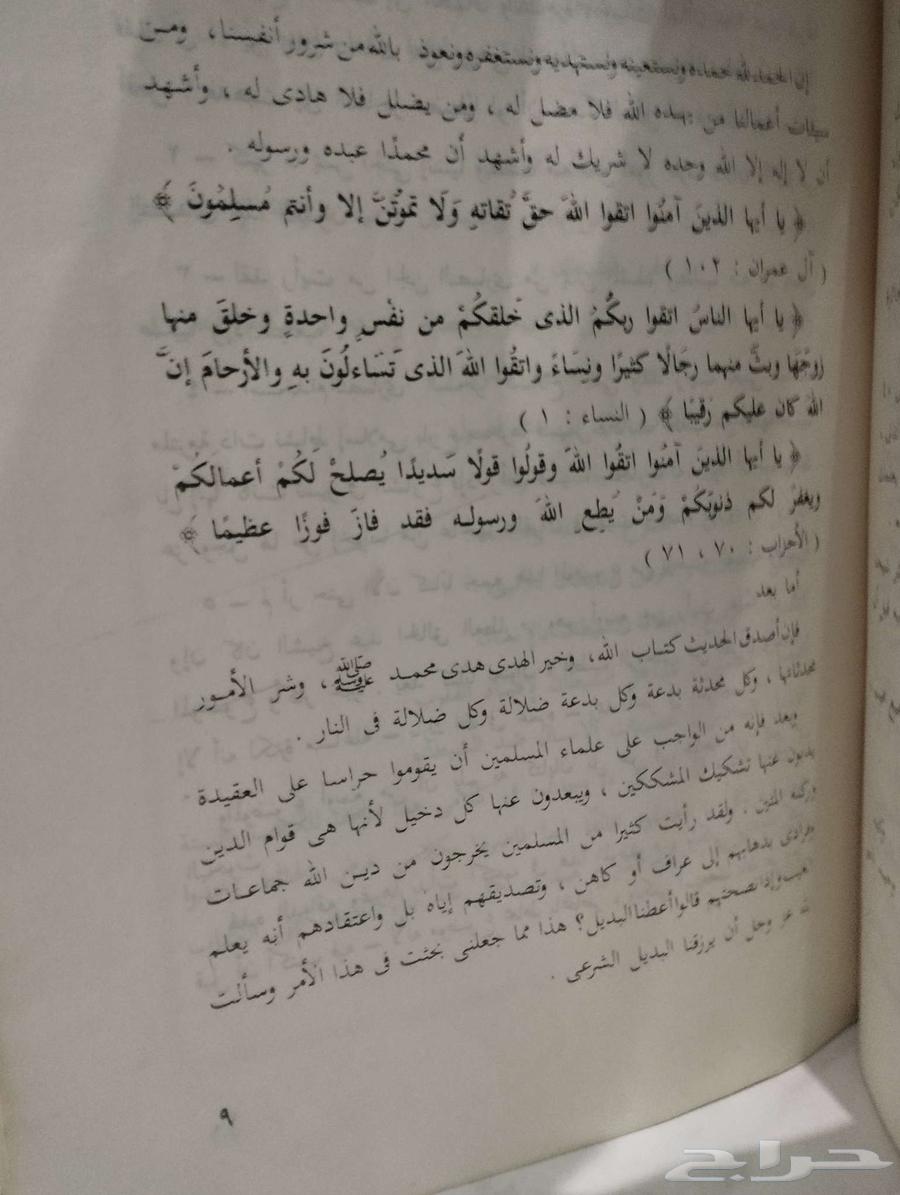 إن الحمد لله نحمده ونستعينه ونستهديه ونستغفره ونعوذ بالله من شرور أنفسنا، ومن
سيئات أعمالنا من يهده الله فلا مضل له ، ومن يضلل فلا هادى له ، وأشهد
أن لا إله إلا الله وحده لا شريك له وأشهد أن محمدًا عبده ورسوله .
﴿ يا أيها الذينَ آمنُوا اتقوا اللهَ حقَّ تُقاتهِ وَلَا تموتُنَّ إلا وأنتم مُسلِمُونَ ﴾
( آل عمران : ١٠٢ )
﴿ يا أيها الناسُ اتقوا ربكُمْ الذى خَلقكُمْ من نفْسٍ واحدةٍ وخلقَ منها
زوجَهَا وبثَّ منهما رجَالًا كثيرًا ونِسَاءً واتقُوا اللهَ الذى تَسَاءلُونَ بهِ والأرحامَ إنَّ
اللهَ كان عليكم رَقيبًا ﴾ ( النساء : ١ )
﴿ يا أيها الذينَ آمنُوا اتقُوا اللهَ وقولُوا قولًا سَديدًا يُصلحْ لكُمْ أعمالكُمْ
ويغفرْ لكم ذنوبَكُمْ وَمَنْ يُطعِ اللهَ ورسولـه فقد فازَ فوزًا عظيمًا ﴾
( الأحزاب : ٧٠ ، ٧١ )
أما بعد
فإن أصدق الحديث كتـاب الله، وخير الهدى هدى محمـد ﷺ ، وشر الأمـور
محدثاتها ، وكل محدثة بدعة وكل بدعة ضلالة وكل ضلالة فى النار .
وبعد فإنه من الواجب على علماء المسلمين أن يقوموا حراسا على العقيدة
يذبون عنها تشكيك المشككين ، ويبعدون عنها كل دخيل لأنها هى قوام الدين
وركنه المتين . ولقد رأيت كثيرا من المسلمين يخرجون من ديـن الله جماعـات
وفرادى بذهابهم إلى عراف أو كاهن ، وتصديقهم إياه بل واعتقادهم أنه يعلـم
الغيب وإذا نصحتهم قالوا أعطنا البديل؟ هذا مما جعلنى بحثت فى هذا الأمر وسألت
الله عز وجل أن يرزقنا البديل الشرعى .
٩
حراج